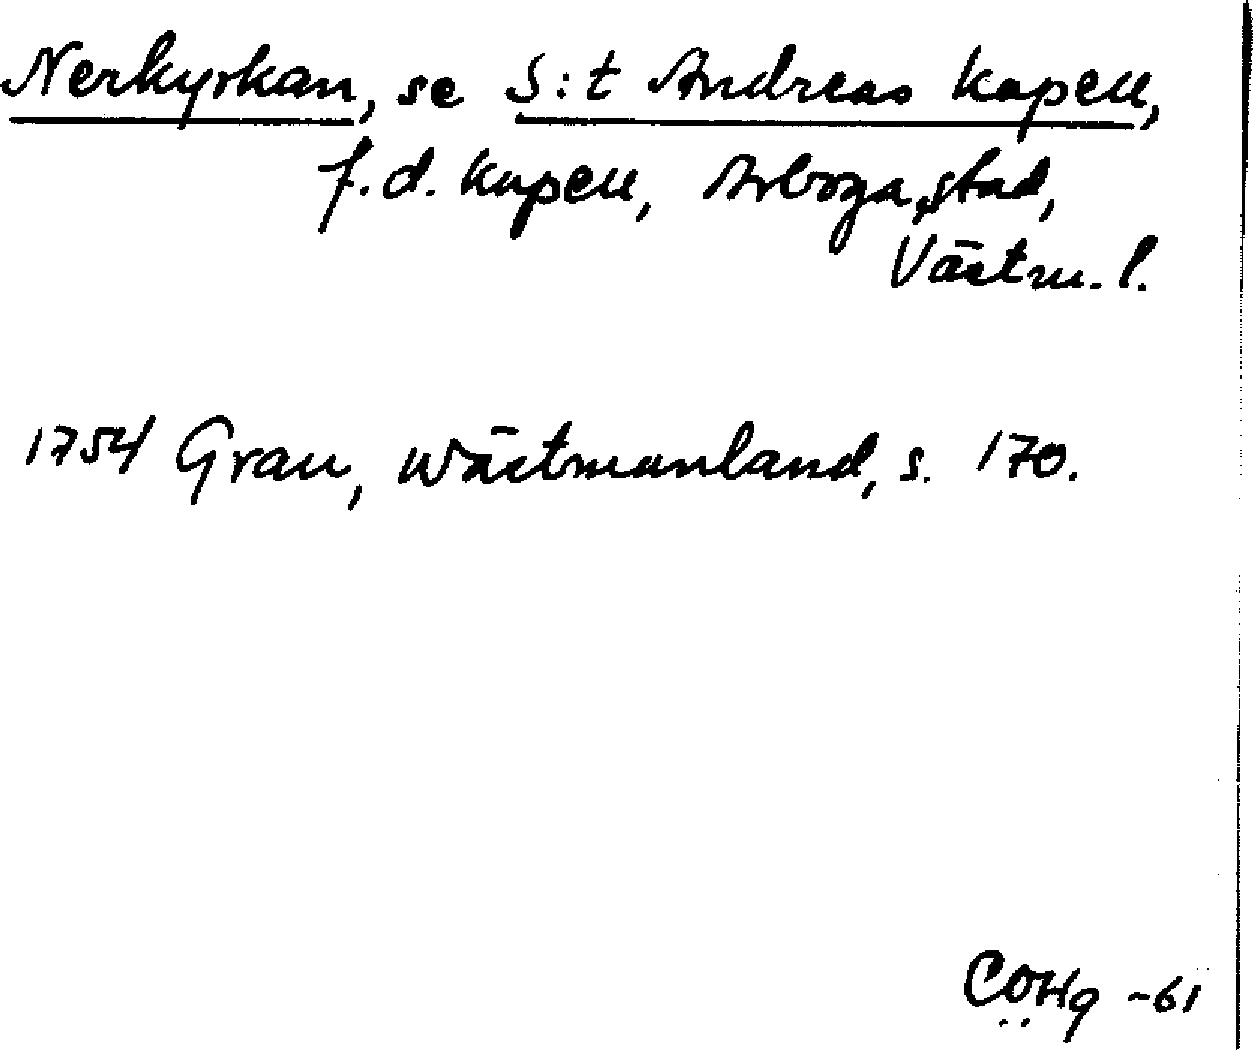 Nerkyrkan, se S:t Andreas kapell,
f.d. kapell, Arboga stad,
Västm. l.
1754 Grau, Wästmanland, s. 170.
-61